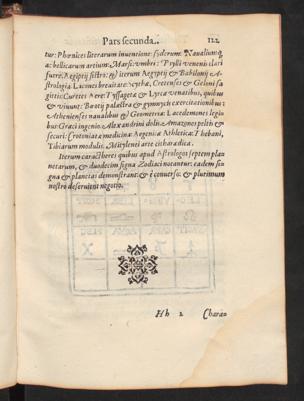 Pars secunda. 112
tur: Phœnices literarum inuentione: syderum: Naualiumq
a: bellicarum artium: Marsi: vmbri: Psylli venenis clari
fuere: Aegiptij sistro: & iterum Aegyptij & Babilonij A-
strologia: Lacones breuitate: scythæ, Cretenses & Geloni sa
gittis: Curetes Aere: Tyssagetæ & Lyrcæ venatibus, quibus
& viuunt: Bœotij palestra & gymnycis exercitationibus:
Athenienses naualibus & Geometria: Lacedemones legin
bus Græci ingenio: Alexandrini dolis: Amazones peltis &
securi: Crotoniatæ medicina: Aeginetæ Athletica: Thebani,
Tibiarum modulis: Mitylenei arte citharædica.
Iterum caractheres quibus apud Astrologos septem plan
netarum, & duodecim signa Zodiaci notantur: eadem sen
gna & planetas demonstrant: & è conuerso: & plurimum
nostro deseruiunt negotio.
Hh 2 Charac